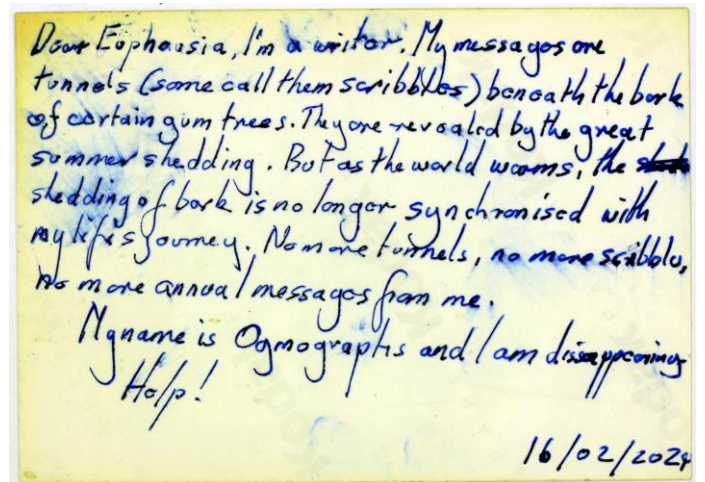 Dear Euphausia, I'm a writer. My messages are
tunnels (some call them scribbles) beneath the bark
of certain gum trees. They are revealed by the great
summer shedding. But as the world warms, the
shedding of bark is no longer synchronised with
my life's journey. No more tunnels, no more scibbls,
no more annual messages from me.
My name is Ogmographis and I am dissappearing
Help!
16/02/2024